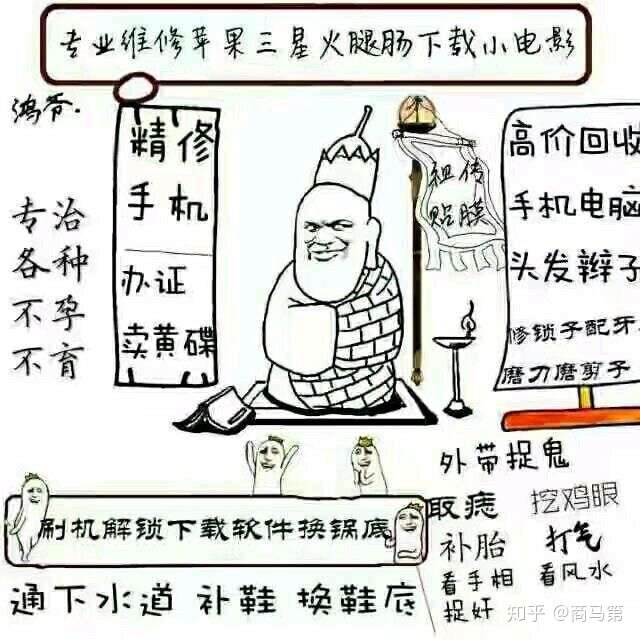 专业维修苹果三星火腿肠下载小电影
鸿爷.
专治
各种
不孕
不育
精修
手机
办证
卖黄碟
祖传
贴膜
高价回收
手机电脑
头发辫子
修锁子配牙
磨刀磨剪子
外带捉鬼
取痣 挖鸡眼
补胎 打气
看手相 看风水
捉奸
刷机解锁下载软件换锅底
通下水道 补鞋 换鞋底
知乎 @商马第